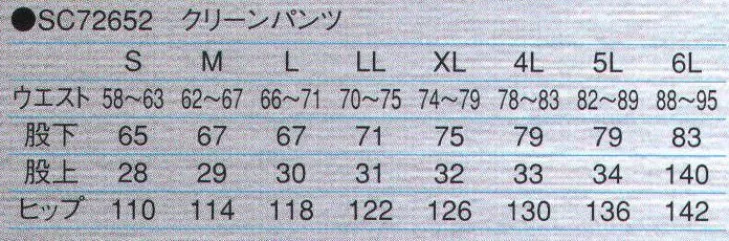 ●SC72652 クリーンパンツ
S M L LL XL 4L 5L 6L
ウエスト 58～63 62～67 66～71 70～75 74～79 78～83 82～89 88～95
股下 65 67 67 71 75 79 79 83
股上 28 29 30 31 32 33 34 140
ヒップ 110 114 118 122 126 130 136 142